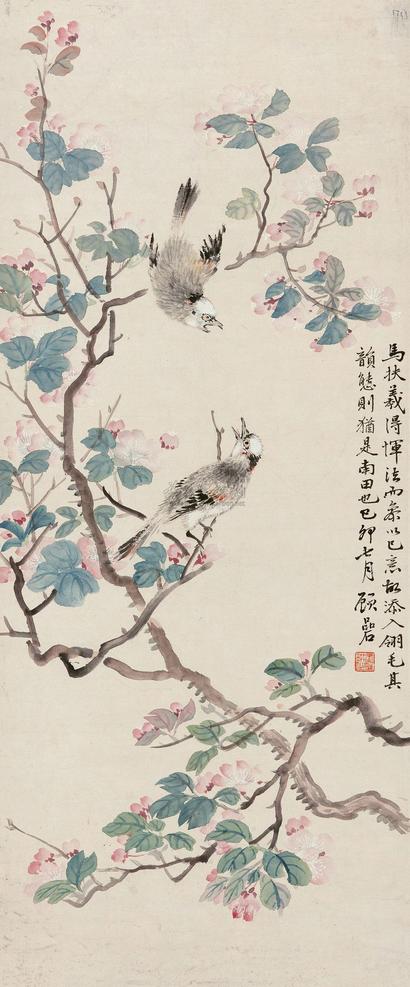 馬扶羲得惲法而叅以己意故添入翎毛其
韻態則猶是南田也己卯七月 顧